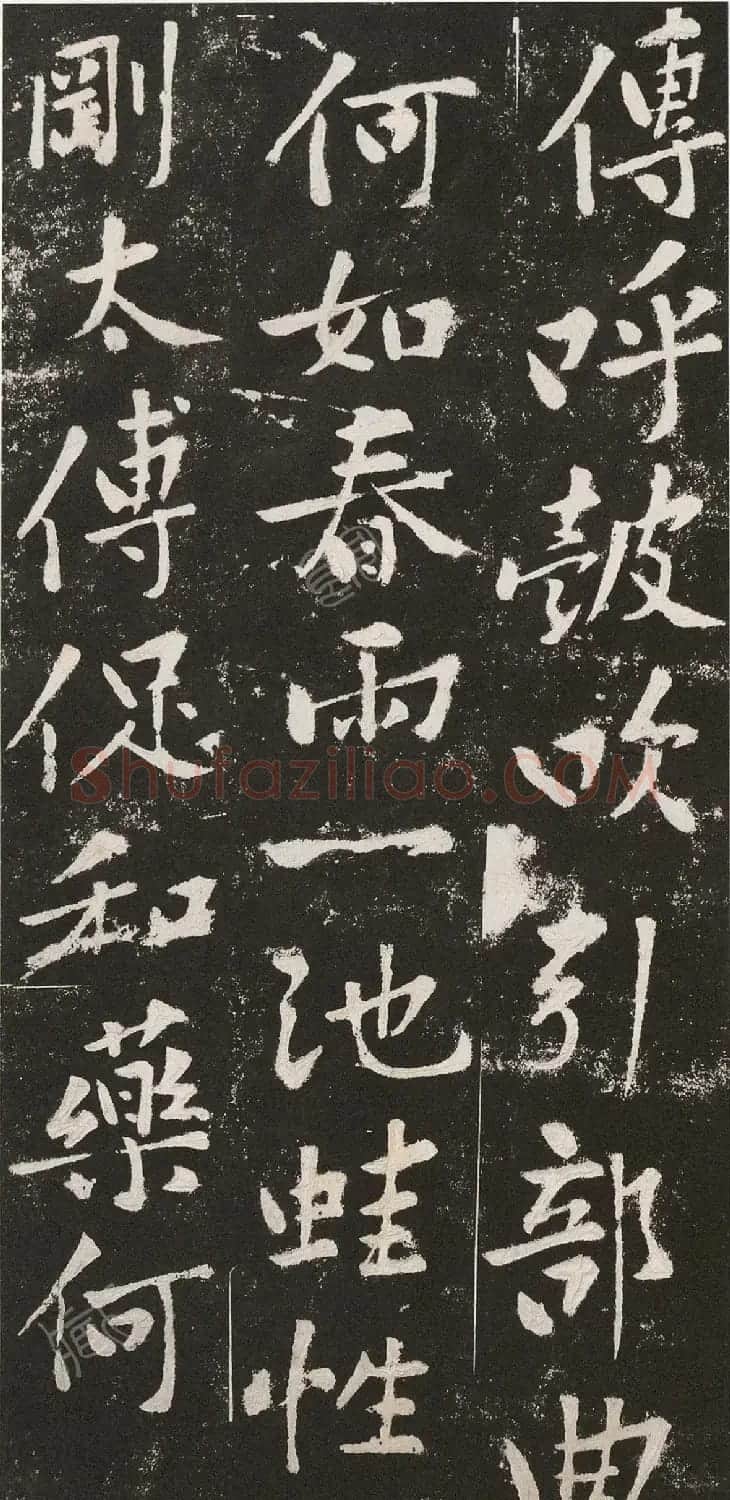 傳呼鼓吹引部曲
何如春雨一池蛙性
剛太傅促和藥何
Shufaziliao.COM